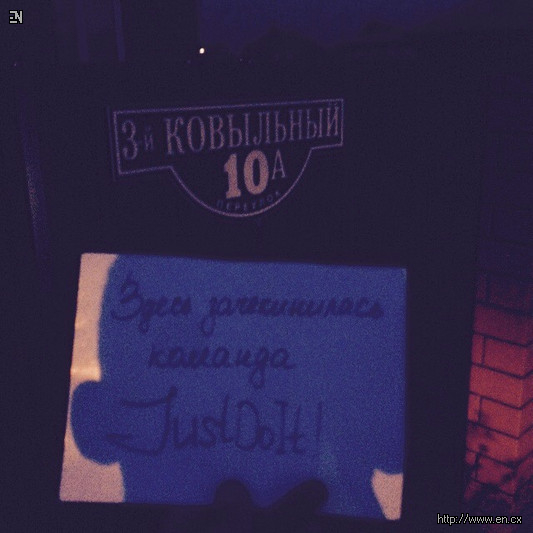 EN
3-й КОВЫЛЬНЫЙ
10А
ПЕРЕУЛОК
Здесь зачекинилась
команда
JustDoIt!
http://www.en.cx